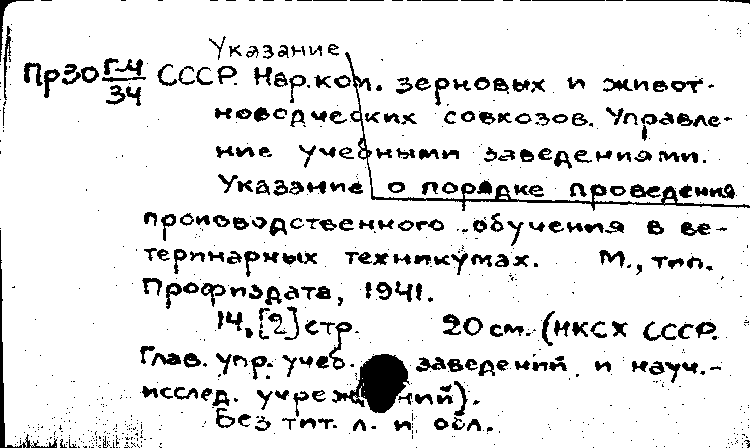 Указание
Пр30 Г-4/34 СССР. Нар.ком. зерновых и живот-
новодческих совхозов. Управле-
ние учебными заведениями.
Указание о порядке проведения
производственного обучения в ве-
теринарных техникумах. М., тип.
Профиздата, 1941.
14, [2] стр. 20 см. (НКСХ СССР.
Глав. упр. учеб. заведений и науч.-
исслед. учреждений).
Без тит. л. и обл.